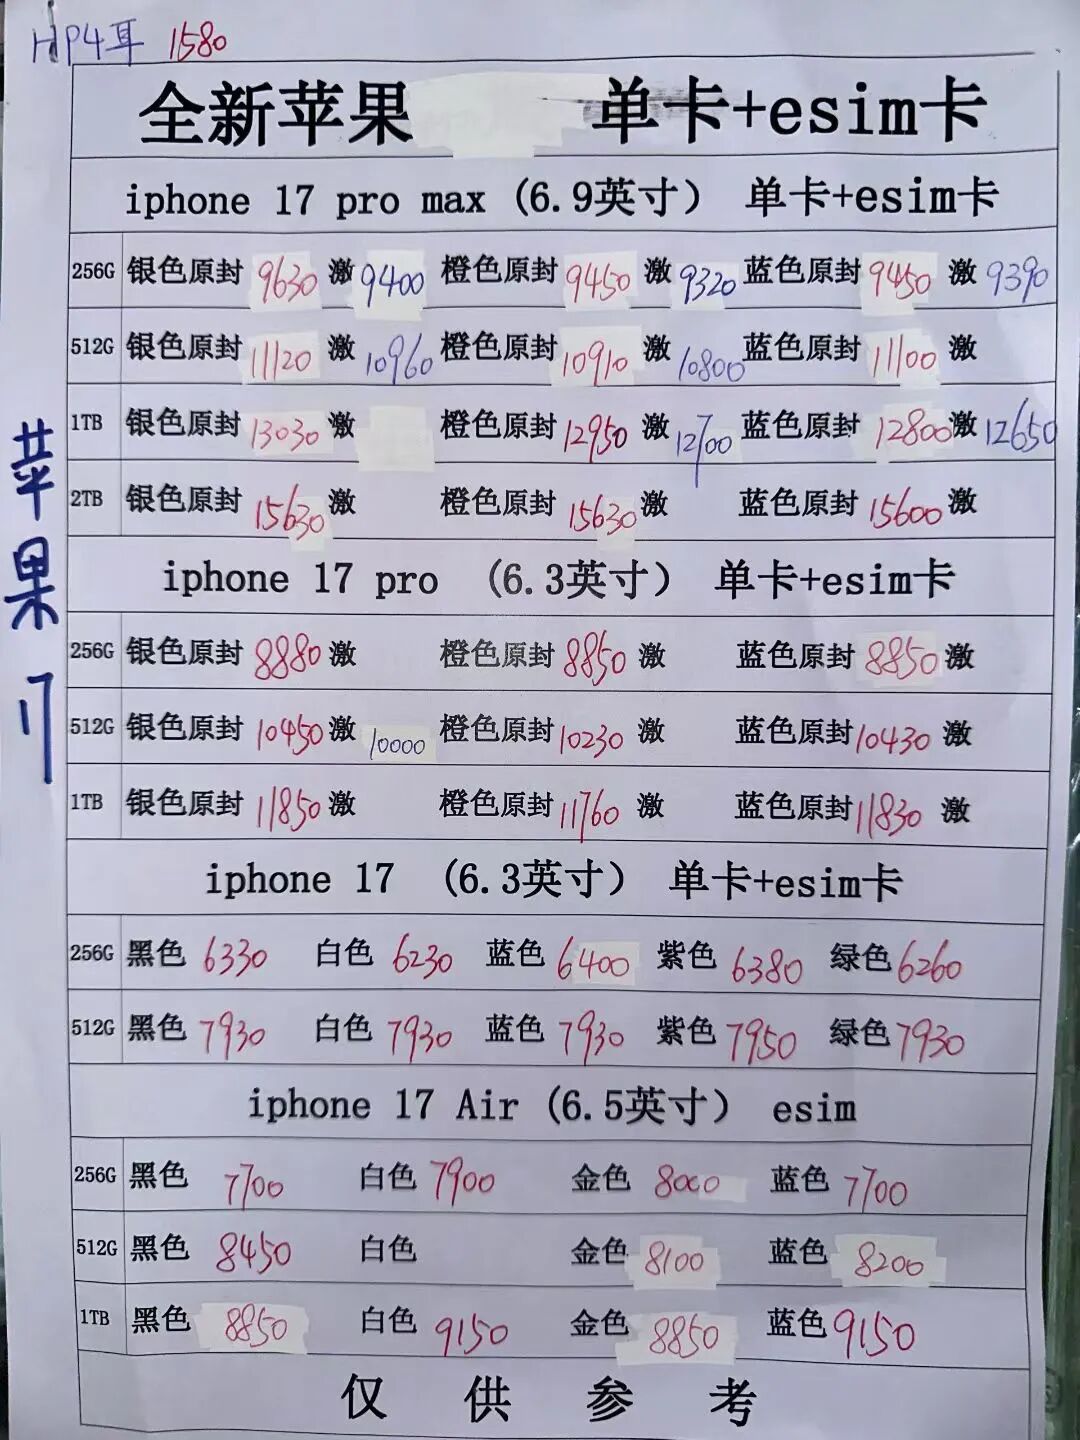 HP4耳 1580
全新苹果 单卡+esim卡
iphone 17 pro max (6.9英寸) 单卡+esim卡
256G 银色原封 9630 激 9400 橙色原封 9450 激 9320 蓝色原封 9450 激 9390
512G 银色原封 11120 激 10960 橙色原封 10910 激 10800 蓝色原封 11100 激
1TB 银色原封 13030 激 橙色原封 12950 激 12700 蓝色原封 12800 激 12650
2TB 银色原封 15630 激 橙色原封 15630 激 蓝色原封 15600 激
iphone 17 pro (6.3英寸) 单卡+esim卡
256G 银色原封 8880 激 橙色原封 8850 激 蓝色原封 8850 激
512G 银色原封 10450 激 10000 橙色原封 10230 激 蓝色原封 10430 激
1TB 银色原封 11850 激 橙色原封 11760 激 蓝色原封 11830 激
iphone 17 (6.3英寸) 单卡+esim卡
256G 黑色 6330 白色 6230 蓝色 6400 紫色 6380 绿色 6260
512G 黑色 7930 白色 7930 蓝色 7930 紫色 7950 绿色 7930
iphone 17 Air (6.5英寸) esim
256G 黑色 7700 白色 7900 金色 8000 蓝色 7700
512G 黑色 8450 白色 金色 8100 蓝色 8200
1TB 黑色 8850 白色 9150 金色 8850 蓝色 9150
仅供参考
苹果17